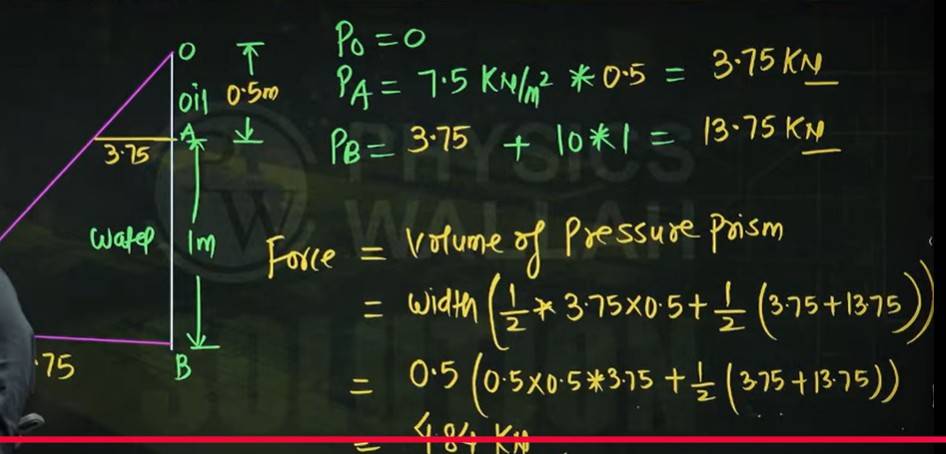 O
oil 0.5m
A
3.75
Water 1m
B
.75
P₀ = 0
P_A = 7.5 KN/m² * 0.5 = 3.75 KN
P_B = 3.75 + 10*1 = 13.75 KN
Force = Volume of Pressure Prism
= width (1/2 * 3.75×0.5 + 1/2 (3.75+13.75))
= 0.5 (0.5×0.5*3.75 + 1/2 (3.75+13.75))
= 4.84 KN
PHYSICS
WALLAH
SOLUTION